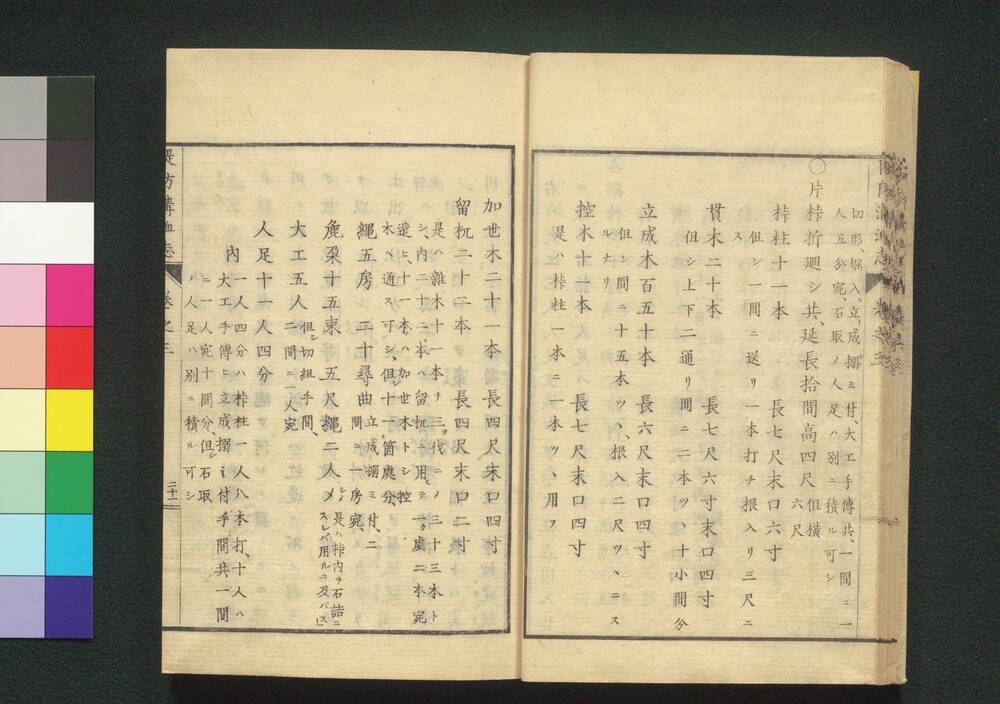 切形、堀入、立成搦ミ付、大工手傳共、一間ニ一
人五分宛、石取ノ人足ハ別ニ積ル可シ
〇片桛折廻シ共、延長拾間高四尺 但横六尺
桛柱十一本 長七尺末口六寸
但シ一間ニ送リ一本打チ根入リ三尺ニ
ス
貫木二十本 長七尺六寸末口四寸
但シ上下二通リ間ニ二本ツヽ十小間分
立成木百五十本 長六尺末口四寸
但シ間ニ十五本ツヽ、根入二尺ツヽニス
ルナリ
控木十一本 長七尺末口四寸
是ハ桛柱一本ニ一本ツヽ用フ
加世木二十一本 長四尺末口四寸
留杭二十二本 長四尺末口二寸
是ハ雜木十一本ヲ三ツ代ニノ三十三本ト
シ、内二十二本ハ留杭ニ用ヒ一ヶ處二本宛
遣ヒ、十一本ハ加世木トシ控
木ヘ通ス可シ、但十ヶ箇處分、
縄五房 二十尋曲
立成搦ミ付、二
間ニ一房宛、
麁朶十五束 五尺縄二人〆
是ハ桛内ヲ石詰ニ
スレバ用ルニ及バス
大工五人 但シ切組手間、
二間ニ一人宛
人足十一人四分
内 一人四分ハ桛柱一人八本打、十人ハ
大工手傳ヒ立成搦ミ付手間共一間
ニ一人宛十間分、但シ石取
ハ人足ハ別ニ積ル可シ
堤防溝洫志 巻之三 二十一